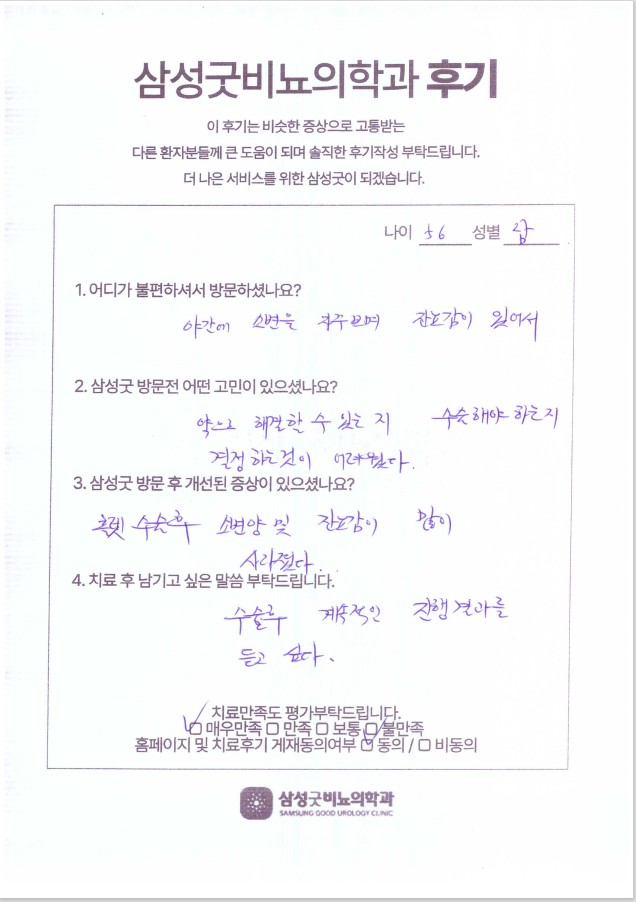 삼성굿비뇨의학과 후기
이 후기는 비슷한 증상으로 고통받는
다른 환자분들께 큰 도움이 되며 솔직한 후기작성 부탁드립니다.
더 나은 서비스를 위한 삼성굿이 되겠습니다.
나이 56 성별 남
1. 어디가 불편하셔서 방문하셨나요?
야간에 소변을 자주보며 잔뇨감이 있어서
2. 삼성굿 방문전 어떤 고민이 있으셨나요?
약으로 해결할 수 있는지 수술해야 하는지
결정하는것이 어려웠다.
3. 삼성굿 방문 후 개선된 증상이 있으셨나요?
수술후 소변양 및 잔뇨감이 많이
사라졌다.
4. 치료 후 남기고 싶은 말씀 부탁드립니다.
수술후 계속적인 진행결과를
듣고 싶다.
치료만족도 평가부탁드립니다.
매우만족 만족 보통 불만족
홈페이지 및 치료후기 게재동의여부 동의 / 비동의
삼성굿비뇨의학과
SAMSUNG GOOD UROLOGY CLINIC